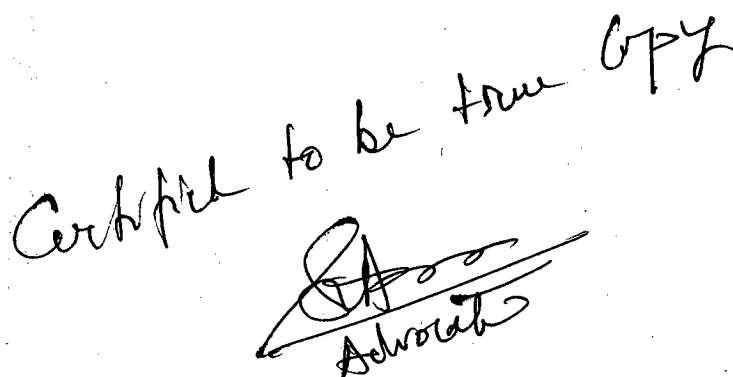 Certified to be true Copy
Advocate